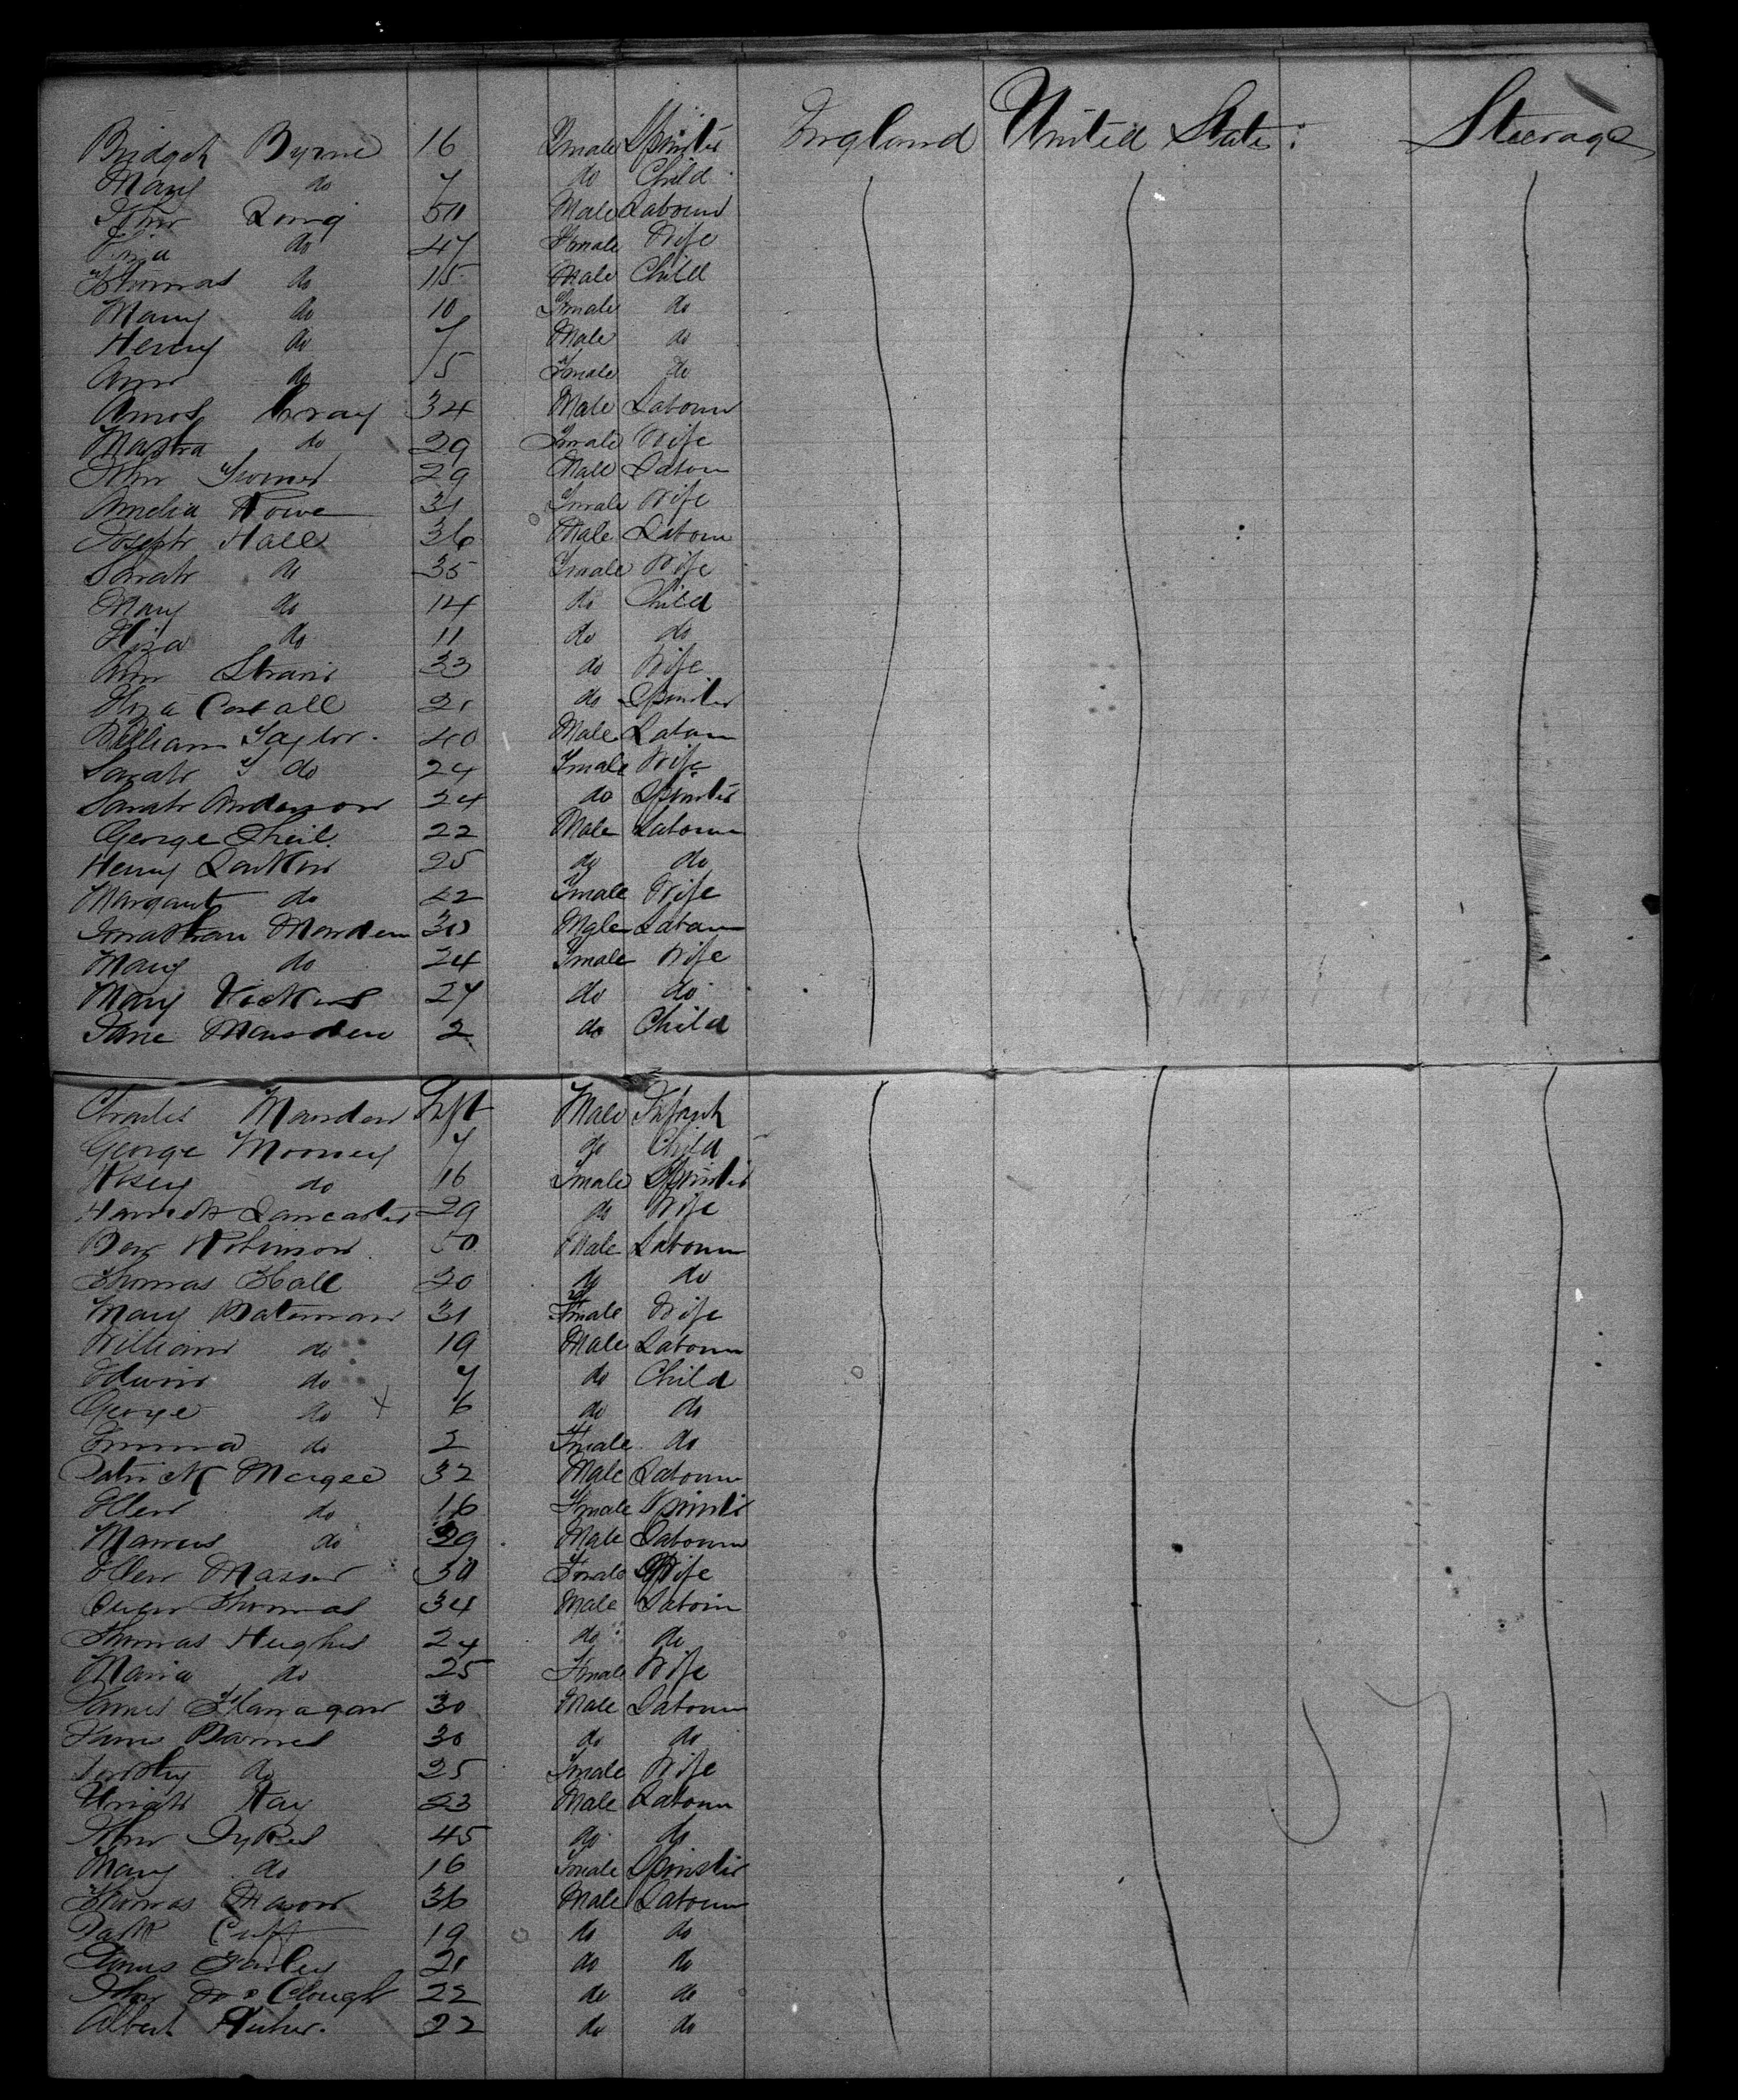 Bridget Byrne 16 Female Spinster England United States Steerage
Mary do 7 do Child
John Long 50 Male Labourer
Eliza do 47 Female Wife
Thomas do 15 Male Child
Mary do 10 Female do
Henry do 7 Male do
Ann do 5 Female do
Amos Gray 34 Male Labourer
Martha do 29 Female Wife
John 29 Male Labour
Amelia Rowe 31 Female Wife
Joseph Hall 36 Male Labour
Sarah do 35 Female Wife
Mary do 14 do Child
Eliza do 11 do do
Ann 33 do Wife
Eliza 21 do Spinster
William Taylor 40 Male Labour
Sarah J do 24 Female Wife
Sarah Anderson 24 do Spinster
George Sheil 22 Male Labour
Henry 25 do do
Margaret do 22 Female Wife
Jonathan 30 Male Labour
Mary do 24 Female Wife
Mary 27 do do
Jane Marsden 2 do Child
Charles Marsden Inft Male Infant
George Mooney 7 do Child
Rosey do 16 Female Spinster
Harriett Lancaster 29 do Wife
Benj Robinson 50 Male Labour
Thomas Hall 20 do do
Mary Bateman 31 Female Wife
William do 19 Male Labour
Edwin do 7 do Child
George do 6 do do
Emma do 2 Female do
Patrick Magee 32 Male Labour
Ellen do 16 Female Spinster
Marcus do 39 Male Labour
Ellen 30 Female Wife
Owen Thomas 34 Male Labour
Thomas Hughes 24 do do
Maria do 25 Female Wife
James Flanagan 30 Male Labour
James Barnes 30 do do
do 25 Female Wife
Uriah Kay 23 Male Labour
John Sykes 45 do do
Mary do 16 Female Spinster
Thomas Mason 36 Male Labour
Patk Cuff 19 do do
James Farley 21 do do
John Clough 22 do do
Albert 22 do do